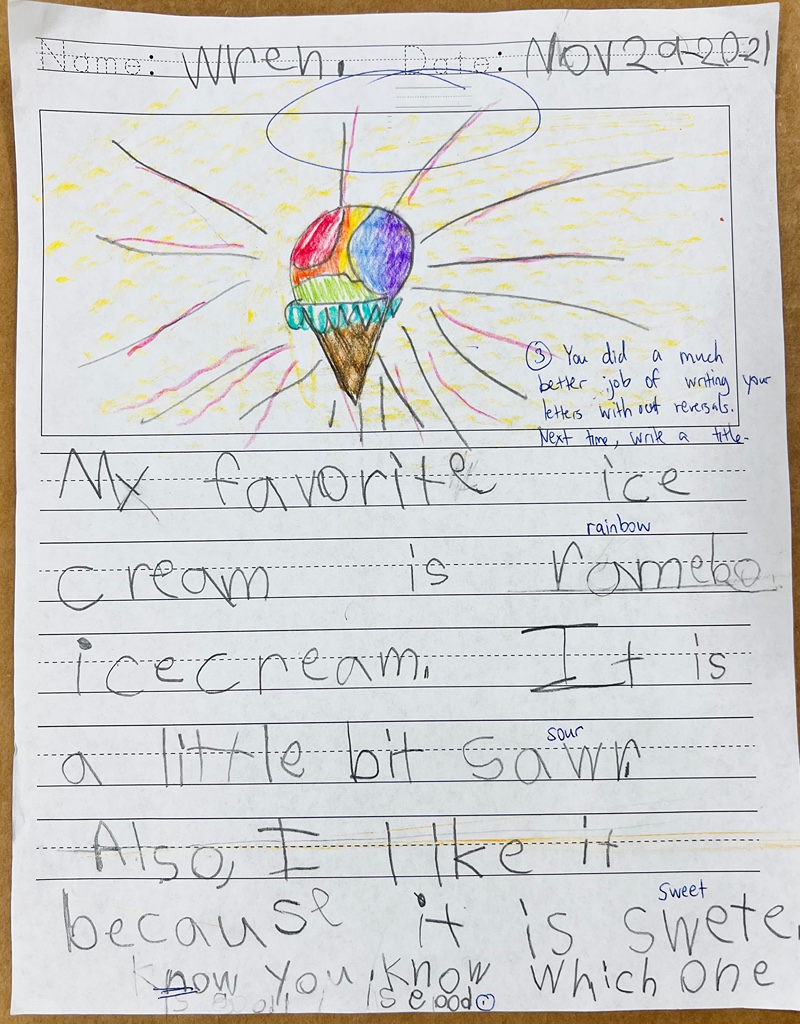 Name: Wren. Date: Nov 29-2021
③ You did a much
better job of writing your
letters with out reversals.
Next time, write a title.
My favorite ice
rainbow
cream is ramebo.
icecream. It is
sour
a little bit sawr.
Also, I like it
sweet
because it is swete.
know you know which one
is good